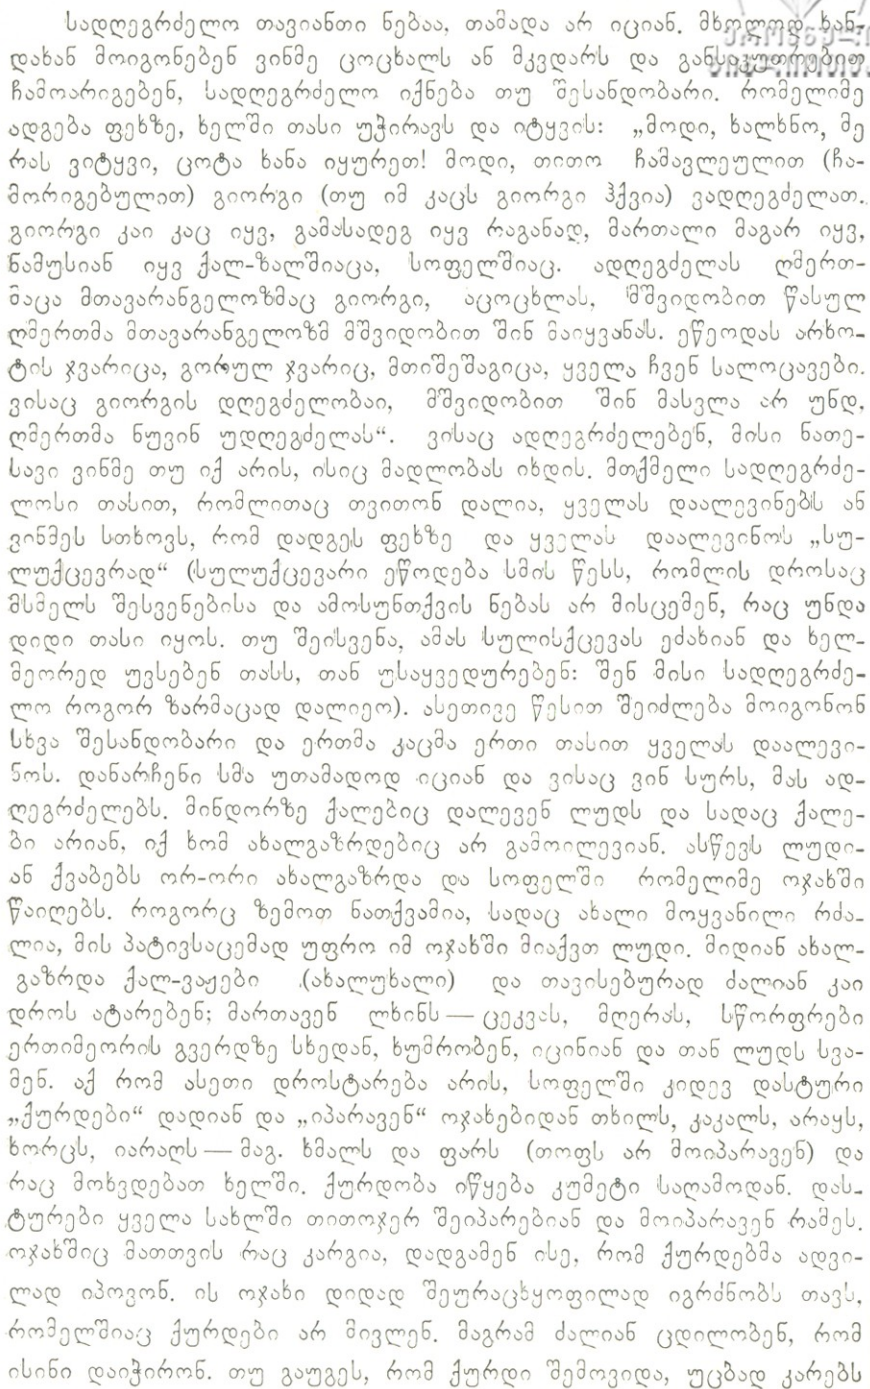 სადღეგრძელო თავიანთი ნებაა, თამადა არ იციან. მხოლოდ ხან-
დახან მოიგონებენ ვინმე ცოცხალს ან მკვდარს და განსაკუთრებით
ჩამოარიგებენ, სადღეგრძელო იქნება თუ შესანდობარი. რომელიმე
ადგება ფეხზე, ხელში თასი უჭირავს და იტყვის: „მოდი, ხალხნო, მე
რას ვიტყვი, ცოტა ხანა იყურეთ! მოდი, თითო ჩამავლეულით (ჩა-
მორიგებულით) გიორგი (თუ იმ კაცს გიორგი ჰქვია) ვადღეგძელათ.
გიორგი კაი კაც იყვ, გამასადეგ იყვ რაგანად, მართალი მაგარ იყვ,
ნამუსიან იყვ ქალ-ზალშიაცა, სოფელშიაც. ადღეგძელას ღმერთ-
მაცა მთავარანგელოზმაც გიორგი, აცოცხლას, მშვიდობით წასულ
ღმერთმა მთავარანგელოზმ მშვიდობით შინ მაიყვანას. ეწეოდას არხო-
ტის ჯვარიცა, გორულ ჯვარიც, მთიშეშაგიცა, ყველა ჩვენ სალოცავები.
ვისაც გიორგის დღეგძელობაი, მშვიდობით შინ მასვლა არ უნდ,
ღმერთმა ნუვინ უდღეგძელას“. ვისაც ადღეგრძელებენ, მისი ნათე-
სავი ვინმე თუ იქ არის, ისიც მადლობას იხდის. მთქმელი სადღეგრძე-
ლოსი თასით, რომლითაც თვითონ დალია, ყველას დაალევინებს ან
ვინმეს სთხოვს, რომ დადგეს ფეხზე და ყველას დაალევინოს „სუ-
ლუქცევრად“ (სულუქცევარი ეწოდება სმის წესს, რომლის დროსაც
მსმელს შესვენებისა და ამოსუნთქვის ნებას არ მისცემენ, რაც უნდა
დიდი თასი იყოს. თუ შეისვენა, ამას სულისქცევას ეძახიან და ხელ-
მეორედ უვსებენ თასს, თან უსაყვედურებენ: შენ მისი სადღეგრძე-
ლო როგორ ზარმაცად დალიეო). ასეთივე წესით შეიძლება მოიგონონ
სხვა შესანდობარი და ერთმა კაცმა ერთი თასით ყველას დაალევი-
ნოს. დანარჩენი სმა უთამადოდ იციან და ვისაც ვინ სურს, მას ად-
ღეგრძელებს. მინდორზე ქალებიც დალევენ ლუდს და სადაც ქალე-
ბი არიან, იქ ხომ ახალგაზრდებიც არ გამოილევიან. ასწევს ლუდი-
ან ქვაბებს ორ-ორი ახალგაზრდა და სოფელში რომელიმე ოჯახში
წაიღებს. როგორც ზემოთ ნათქვამია, სადაც ახალი მოყვანილი რძა-
ლია, მის პატივსაცემად უფრო იმ ოჯახში მიაქვთ ლუდი. მიდიან ახალ-
გაზრდა ქალ-ვაჟები (ახალუხალი) და თავისებურად ძალიან კაი
დროს ატარებენ; მართავენ ლხინს — ცეკვას, მღერას, სწორფრები
ერთიმეორის გვერდზე სხედან, ხუმრობენ, იცინიან და თან ლუდს სვა-
მენ. აქ რომ ასეთი დროსტარება არის, სოფელში კიდევ დასტური
„ქურდები“ დადიან და „იპარავენ“ ოჯახებიდან თხილს, კაკალს, არაყს,
ხორცს, იარაღს — მაგ. ხმალს და ფარს (თოფს არ მოიპარავენ) და
რაც მოხვდებათ ხელში. ქურდობა იწყება კუმეტი საღამოდან. დას-
ტურები ყველა სახლში თითოჯერ შეიპარებიან და მოიპარავენ რამეს.
ოჯახშიც მათთვის რაც კარგია, დადგამენ ისე, რომ ქურდებმა ადვი-
ლად იპოვონ. ის ოჯახი დიდად შეურაცხყოფილად იგრძნობს თავს,
რომელშიაც ქურდები არ მივლენ. მაგრამ ძალიან ცდილობენ, რომ
ისინი დაიჭირონ. თუ გაუგეს, რომ ქურდი შემოვიდა, უცბად კარებს